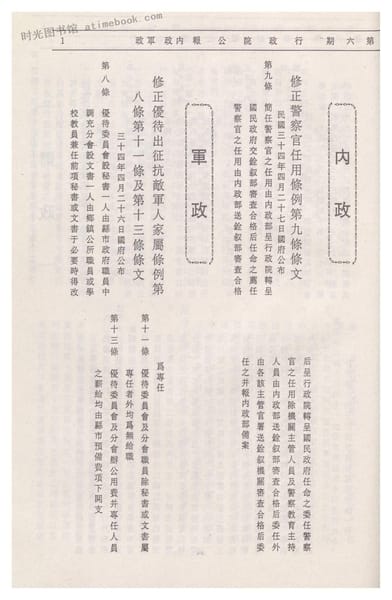 时光图书馆 atimebook.com
1 政軍 政内 報公院政行 期六第
内政
修正警察官任用條例第九條條文
民國三十四年四月二十七日國府公布
第九條 簡任警察官之任用由内政部呈行政院轉呈
國民政府交銓叙部審查合格后任命之薦任
警察官之任用由内政部送銓叙部審查合格
后呈行政院轉呈國民政府任命之委任警察
官之任用除機關主管人員及警察教育主持
人員由内政部送銓叙部審查合格后委任外
由各該主管官署送銓叙機關審查合格后委
任之并報内政部備案
軍政
修正優待出征抗敵軍人家屬條例第
八條第十一條及第十三條條文
三十四年四月二十六日國府公布
第八條 優待委員會設秘書一人由縣市政府職員中
調充分會設文書一人由鄉鎮公所職員或學
校教員兼任前項秘書或文書于必要時得改
爲專任
第十一條 優待委員會及分會職員除秘書或文書屬
專任者外均爲無給職
第十三條 優待委員會及分會辦公用費并專任人員
之薪給均由縣市預備費項下開支